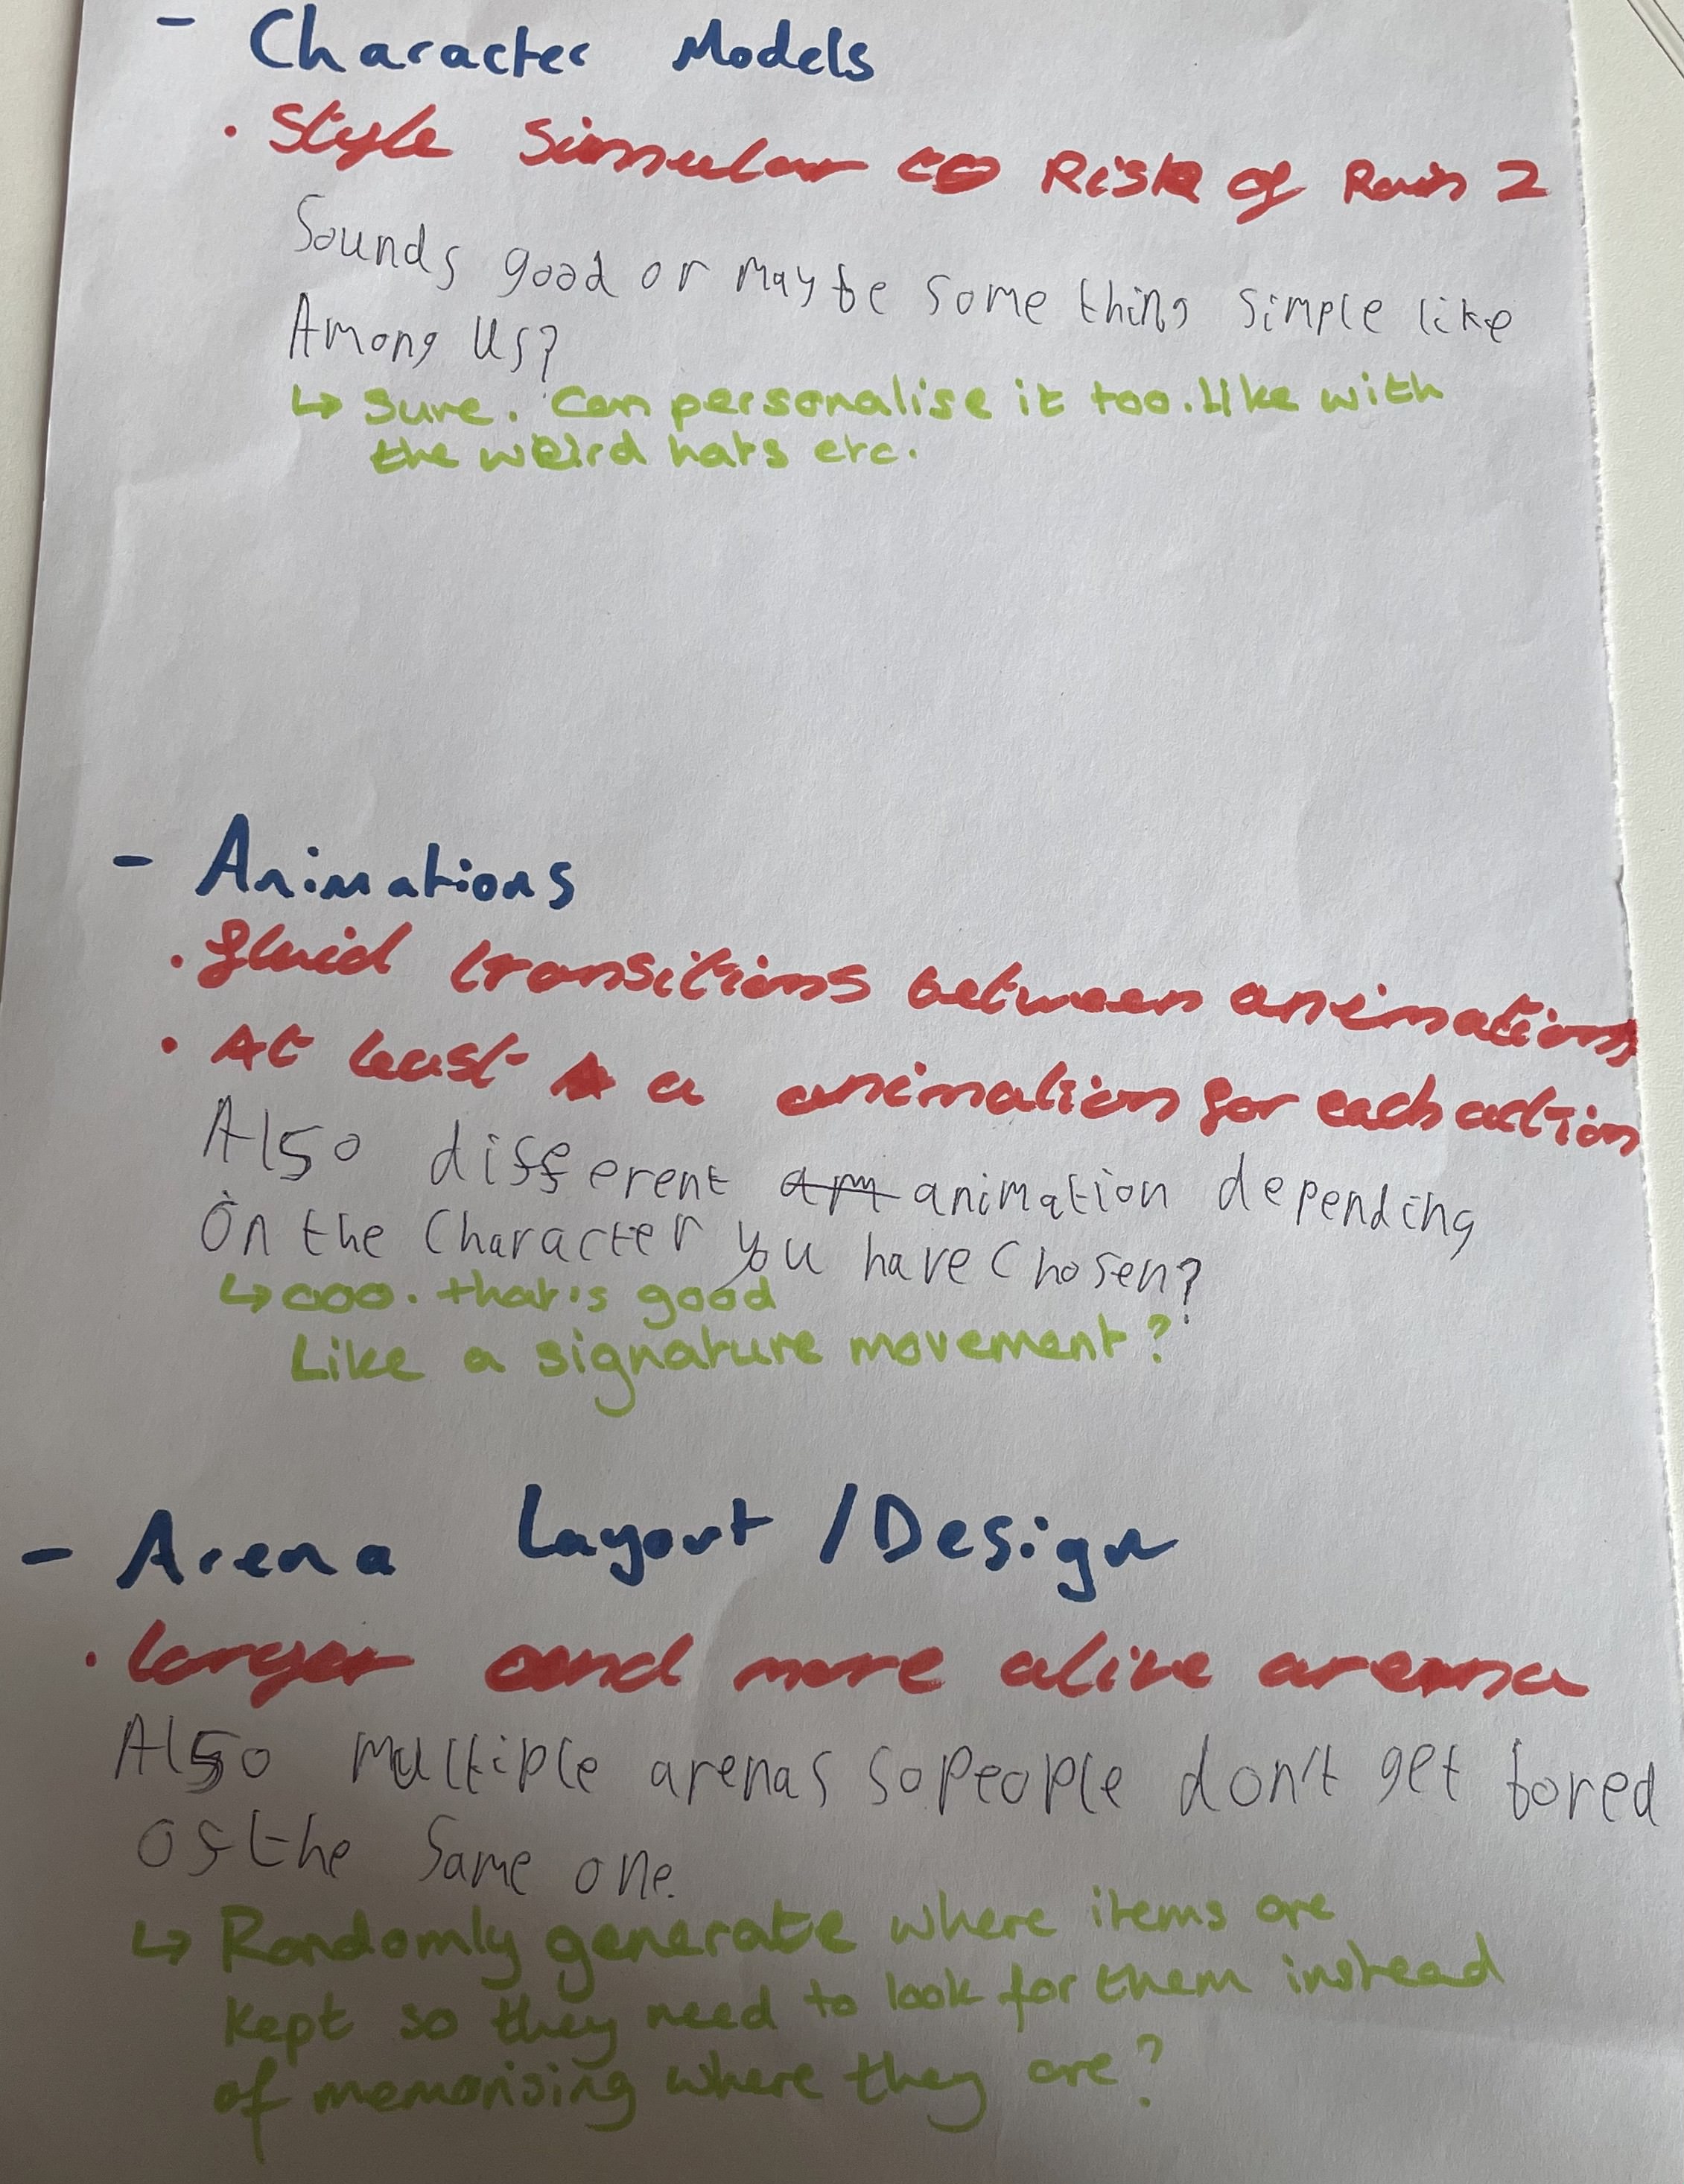 - Character Models
• Style Simular to Risk of Rain 2
Sounds good or maybe something simple like
Among Us?
↳ Sure. Can personalise it too. Like with
the weird hats etc.
- Animations
• fluid transitions between animations
• At least a animation for each action
Also different am animation depending
On the Character you have Chosen?
↳ ooo. that's good
Like a signature movement?
- Arena Layout / Design
• larger and more alive arena
Also multiple arenas so people don't get bored
of the same one.
↳ Randomly generate where items are
kept so they need to look for them instead
of memorising where they are?